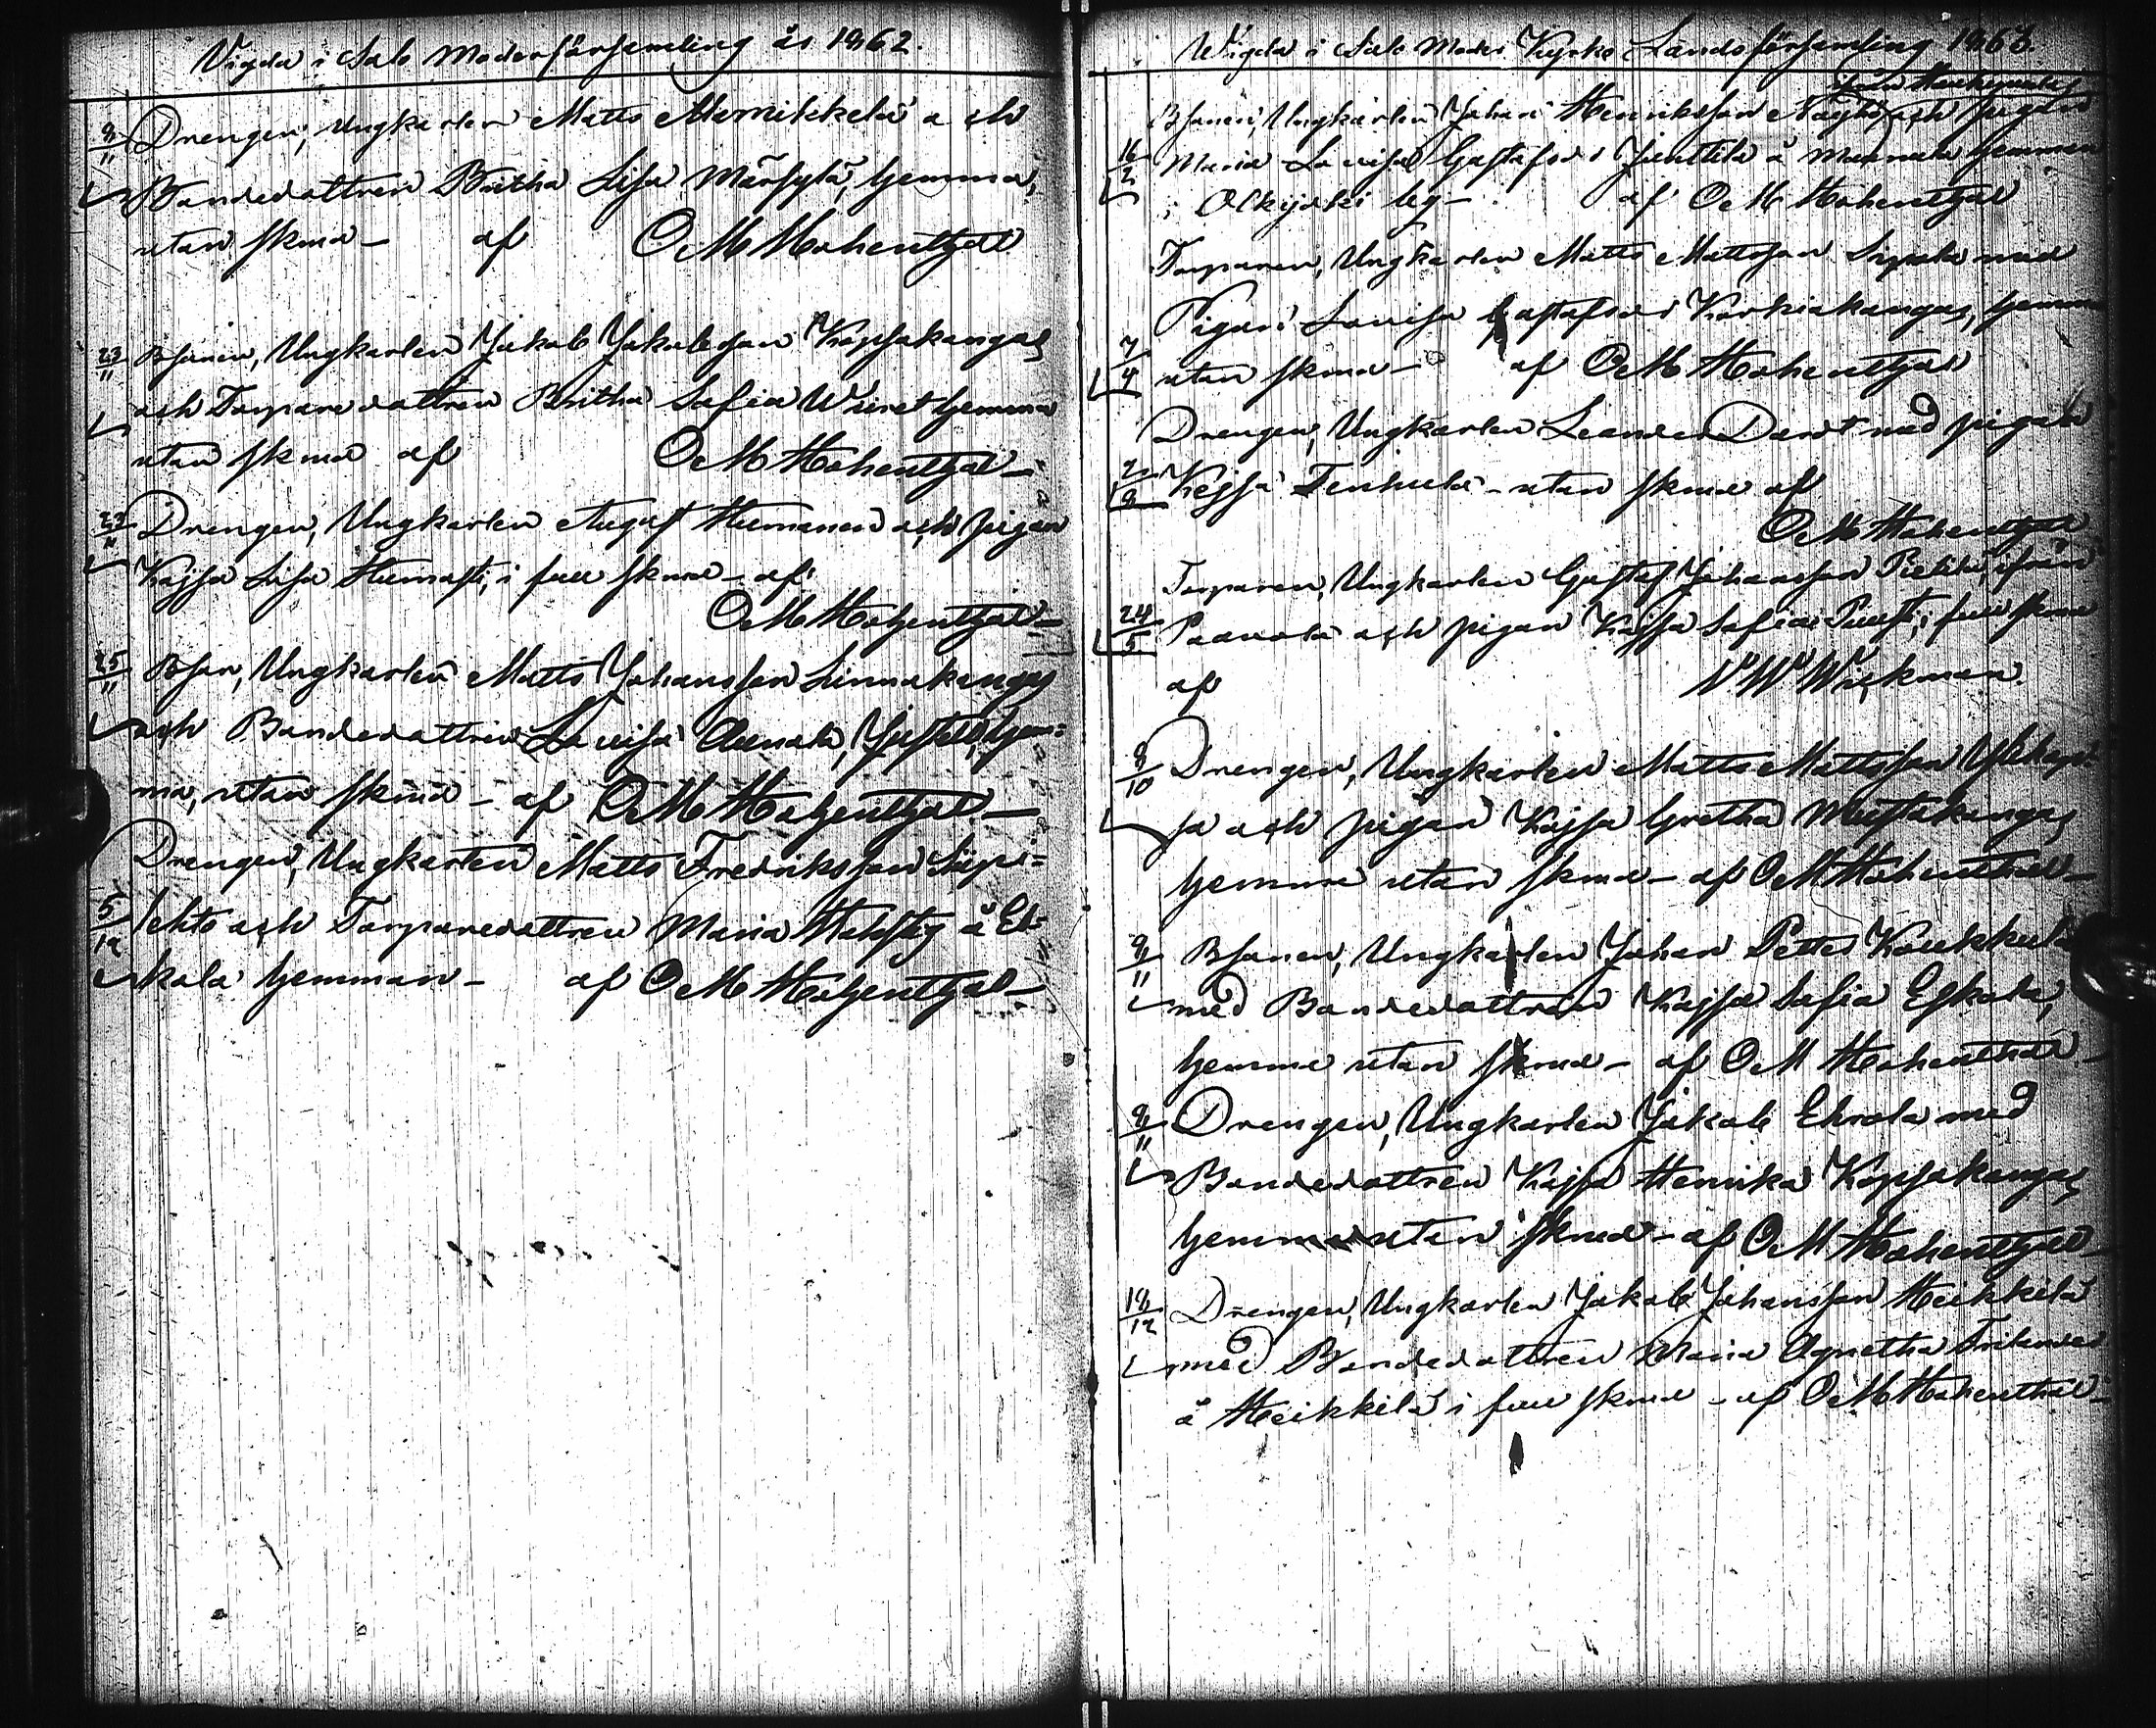 Vigda i Salo Moderförsamling år 1862.
9/11 Drengen, Ungkarlen Matts Marnikkelä och
Bondedottren Britha Lisa Märsylä, hemma,
utan skrud - af OM Hohenthal
23/11 Bsonen, Ungkarlen Jakob Jakobsson Kopsakangas
och Torparedottren Britha Sofia Wiiret hemma
utan skrud af OM Hohenthal -
23/11 Drengen, Ungkarlen August Hiemanen och pigan
Kajsa Lisa i full skrud - af
OM Hohenthal -
25/11 Bson, Ungkarlen Matts Johansson Linnakangas
och Bondedottren Lovisa Aunola, hem=
ma, utan skrud - af OM Hohenthal -
Drengen, Ungkarlen Matts Fredriksson Siipi=
5/12 lehto och Torparedottren Maria å Es=
kola hemman - af OM Hohenthal -
Vigda i Salo Moder Kyrko Landsförsamling 1863.
Bsonen, Ungkarlen Johan Henriksson och pigan
16/2 Maria Lovisa Gustafsdr Junttila å hemman
i Olkijoki by - af OM Hohenthal
Torparen, Ungkarlen Matts Mattsson Sipola med
Pigan Lovisa Gustafsdr Korkiakangas, hemma
7/4 utan skrud - af OM Hohenthal
Drengen, Ungkarlen Leander med pigan
2/8 Kajsa Tenhula - utan skrud af
OM Hohenthal
Torparen, Ungkarlen Gustaf Johansson Pietilä, ifrån
24/5 Paavola och pigan Kajsa Sofia i full skrud
af Wickman
9/10 Drengen, Ungkarlen Matts Mattsson Ylikop=
sa och pigan Kajsa Gretha Mustakangas
hemma utan skrud - af OM Hohenthal -
9/11 Bsonen, Ungkarlen Johan Petter Koukkula
med Bondedottren Kajsa Sofia Eskola,
hemma utan skrud - af OM Hohenthal -
9/11 Drengen, Ungkarlen Jakob Ehrola med
Bondedottren Kajsa Henrika Kopsakangas
hemma utan skrud - af OM Hohenthal -
18/12 Drengen, Ungkarlen Jakob Johansson Heikkilä
med Bondedottren Maria Agnetha
å Heikkilä i full skrud - af OM Hohenthal -